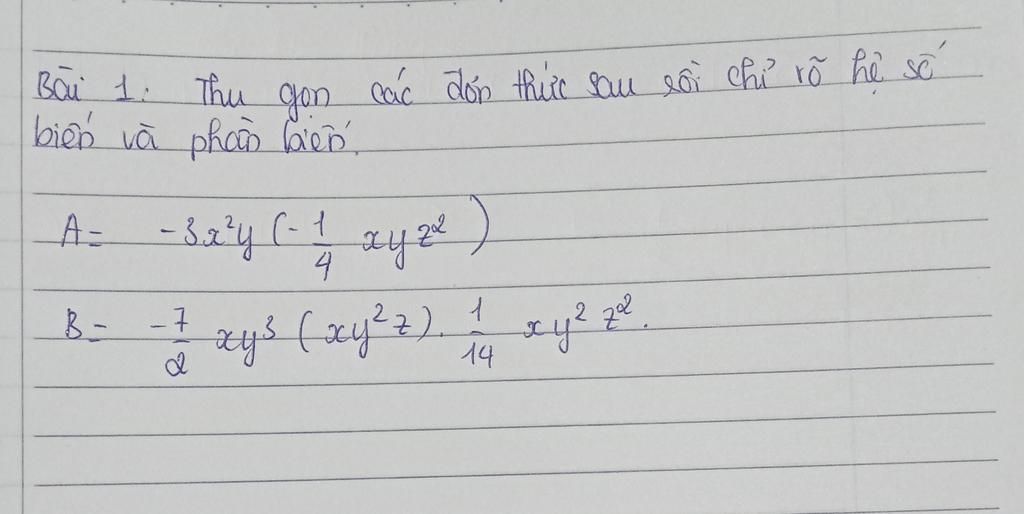 Bài 1: Thu gọn các đơn thức sau rồi chỉ rõ hệ số
biến và phần biến.
A = -3x²y (-1/4 xyz²)
B = -7/2 xy³ (xy²z). 1/14 xy² z².